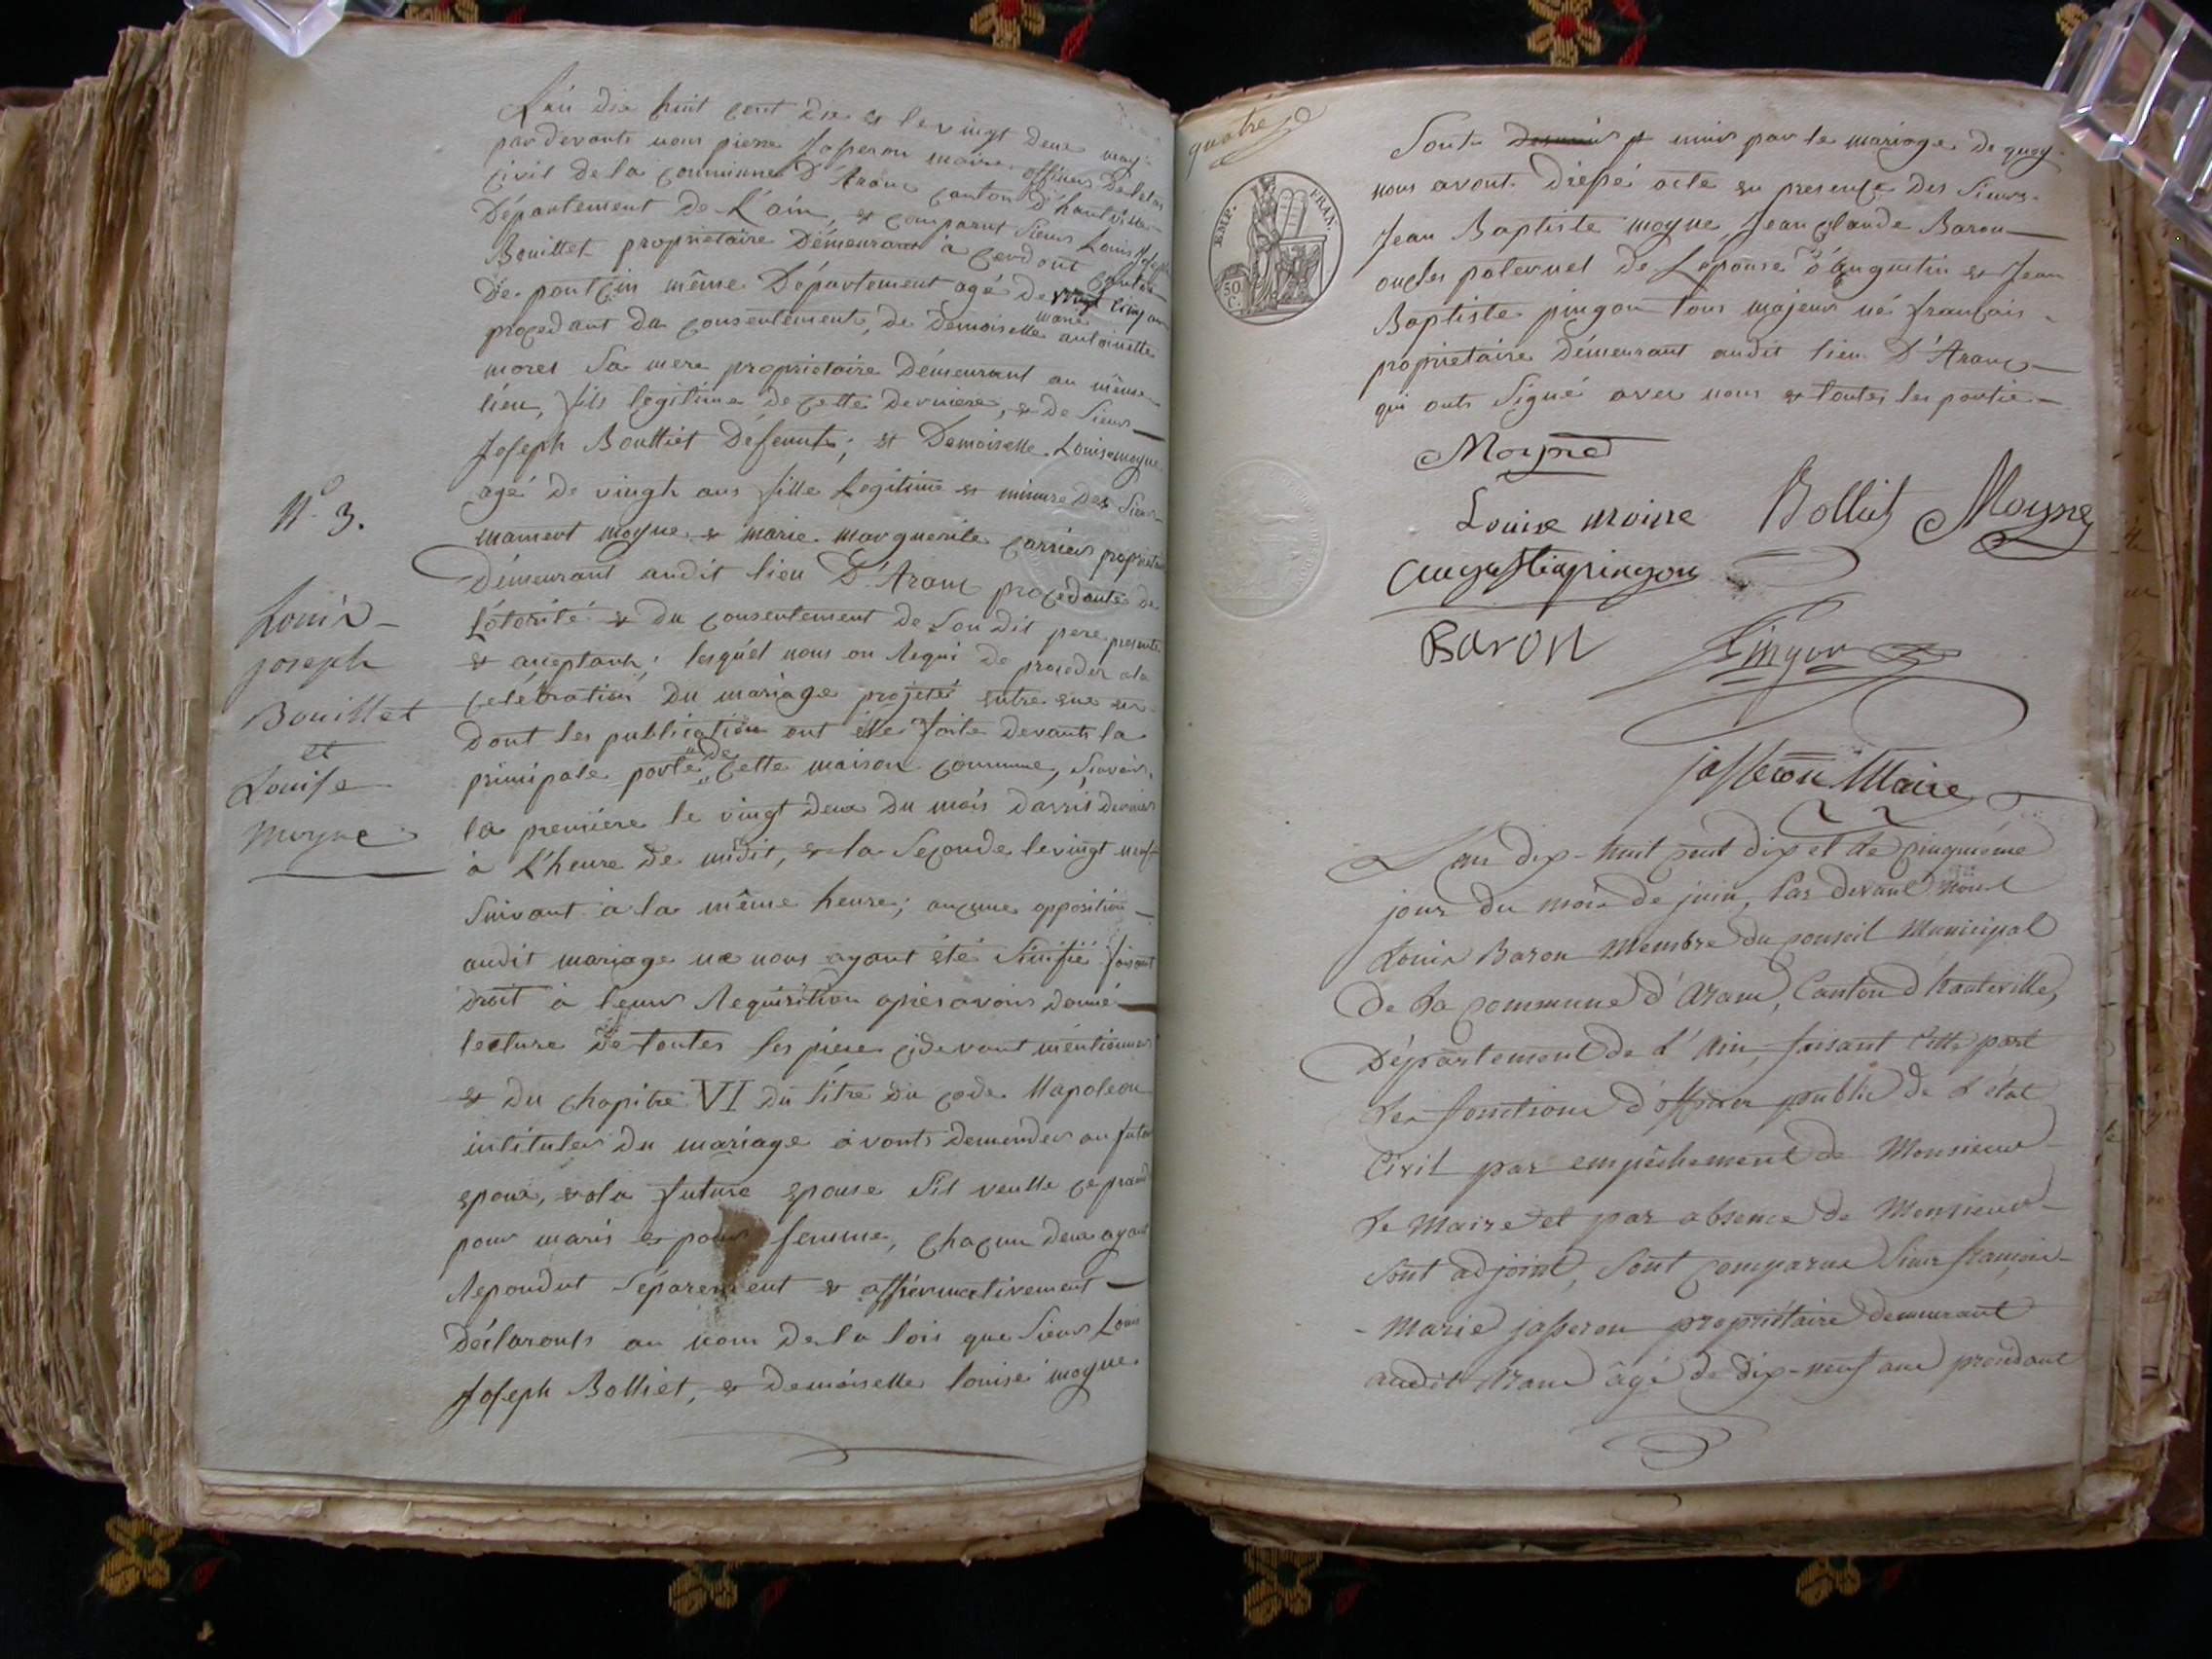 L'an dix huit cent dix et le vingt deux may
pardevants nous pierre Jasseron maire officier de letat
civil de la commune D'Aranc canton D'hauteville
Département De L'ain, et comparut Sieur Louis Joseph
Bouillet propriétaire Démeurant à Cerdont canton
De pontcin même Département agé de vingt cinq ans
procedant du consentement, de Demoiselle marie antoinette
morel Sa mere propriétaire Démeurant au même
lieu, fils légitime de cette derniere, et de Sieur
Joseph Bouttiet Defeunt; et Demoiselle Louise moyne
agé de vingt ans fille Legitime et mineure des Sieur
mamert moyne et marie marguerite carrier propriétaire
Démeurant audit lieu D'Aranc procedante de
L'otorité et du consentement de Son dit pere presente
et acceptant; lesquel nous on Requi de proceder a la
celebration du mariage projeté entre eux et
Dont les publication ont été faite devants la
principale porte de cette maison commune, Scavoir,
la premiére le vingt deux du mois davril dernier
à L'heure de midit, et la Seconde le vingt neuf
Suivant à la même heure; aucune opposition
audit mariage ne nous ayant été Sinifié faisant
droit à leurs Requisition après avoir donné
lecture de toutes les piece cidevant mentionnés
et du chapitre VI du titre du code Napoleon
intituler du mariage avonts demender au futur
epoux, et a la future epouse Sil veulle ce prandre
pour maris et pour femme, chacun deux ayant
Repondut Séparement et affirmativement
Déclaronts au nom De la lois que Sieur Louis
Joseph Bolliet, et demoiselle louise moyne
N.o 3.
Louis
joseph
Bouillet
et
Louise
Moyne
quatre
EMP. FRAN.
50 C.
Sont unis par le mariage De quoy
nous avont. Drèpé acte en presence Des Sieurs
Jean Baptiste moyne, Jean claude Baron
oncles paternel de Lepouse d'Augustin et Jean
Baptiste pingon tous majeur né français
propriétaire Démeurant audit lieu D'Aranc
qui onts Signé avec nous et toutes les partie
Moyne
Louise moine Bolliet Moyne
Augustin pingon
Baron Pingon
jasseron Maire
L'an dix-huit cent dix et le cinquième
jour du mois de juin, Par devant nous
Louis Baron Membre du conseil Municipal
de la commune d'Aranc, Canton d'hauteville,
Département de L'Ain, faisant cette part
les fonctions d'officier public de L'état
Civil par empêchement de Monsieur
le Maire et par absence de Monsieur
Sont adjoint, Sont comparus Sieur françois
-Marie jasseron propriétaire demeurant
audit Aranc âgé de dix-neuf ans procédant